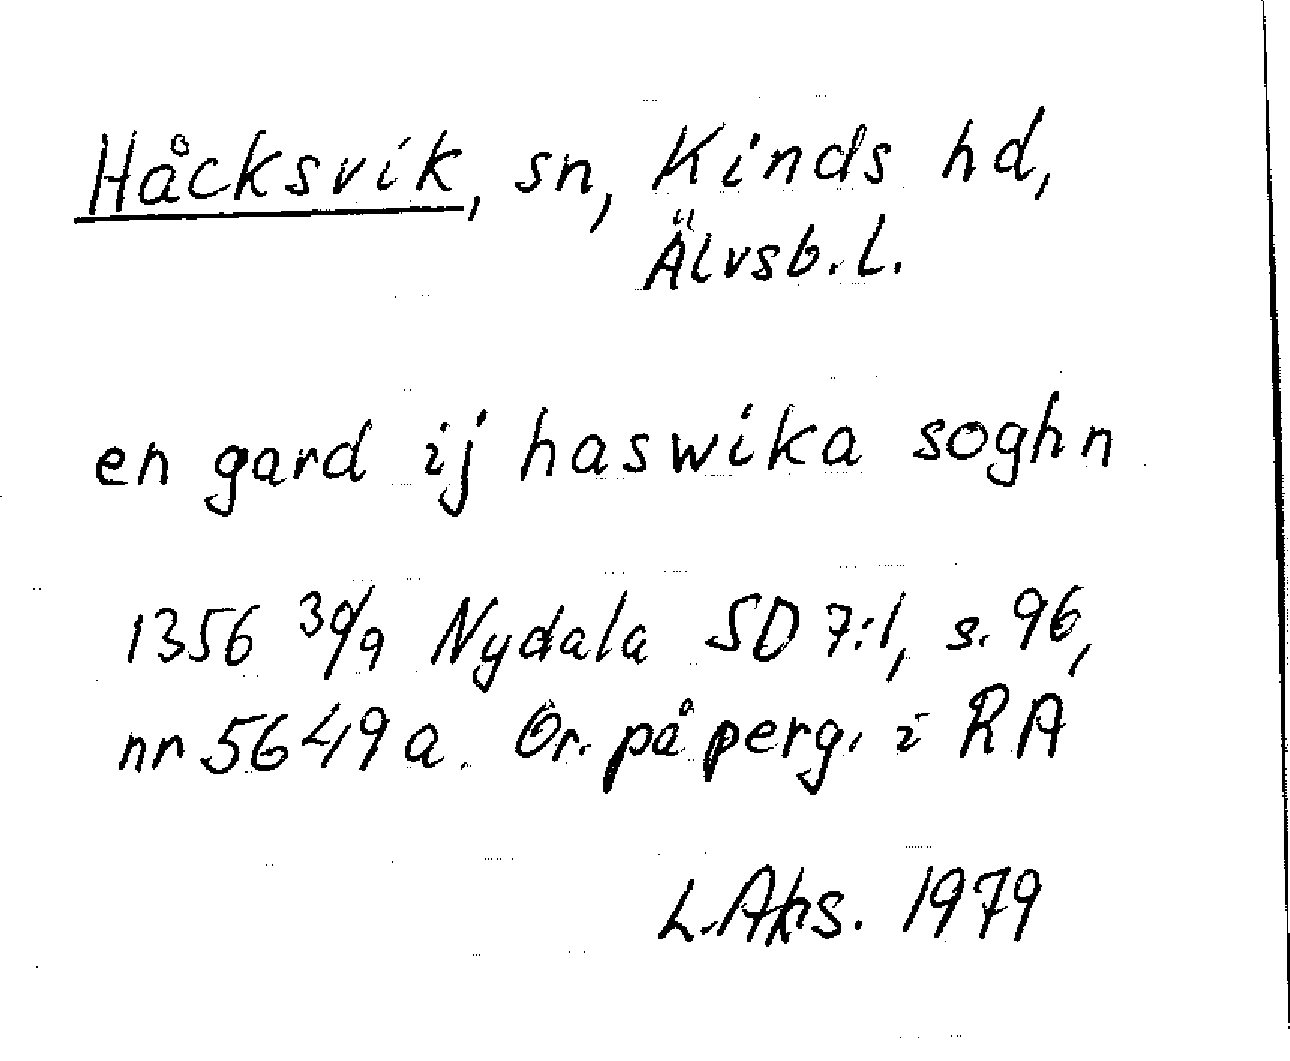 Håcksvik, sn, Kinds hd,
Älvsb. l.
en gard ij haswika soghn
1356 30/9 Nydala SD 7:1, s. 96,
nr 5649 a. Or. på perg. i RA
L. Ahs. 1979